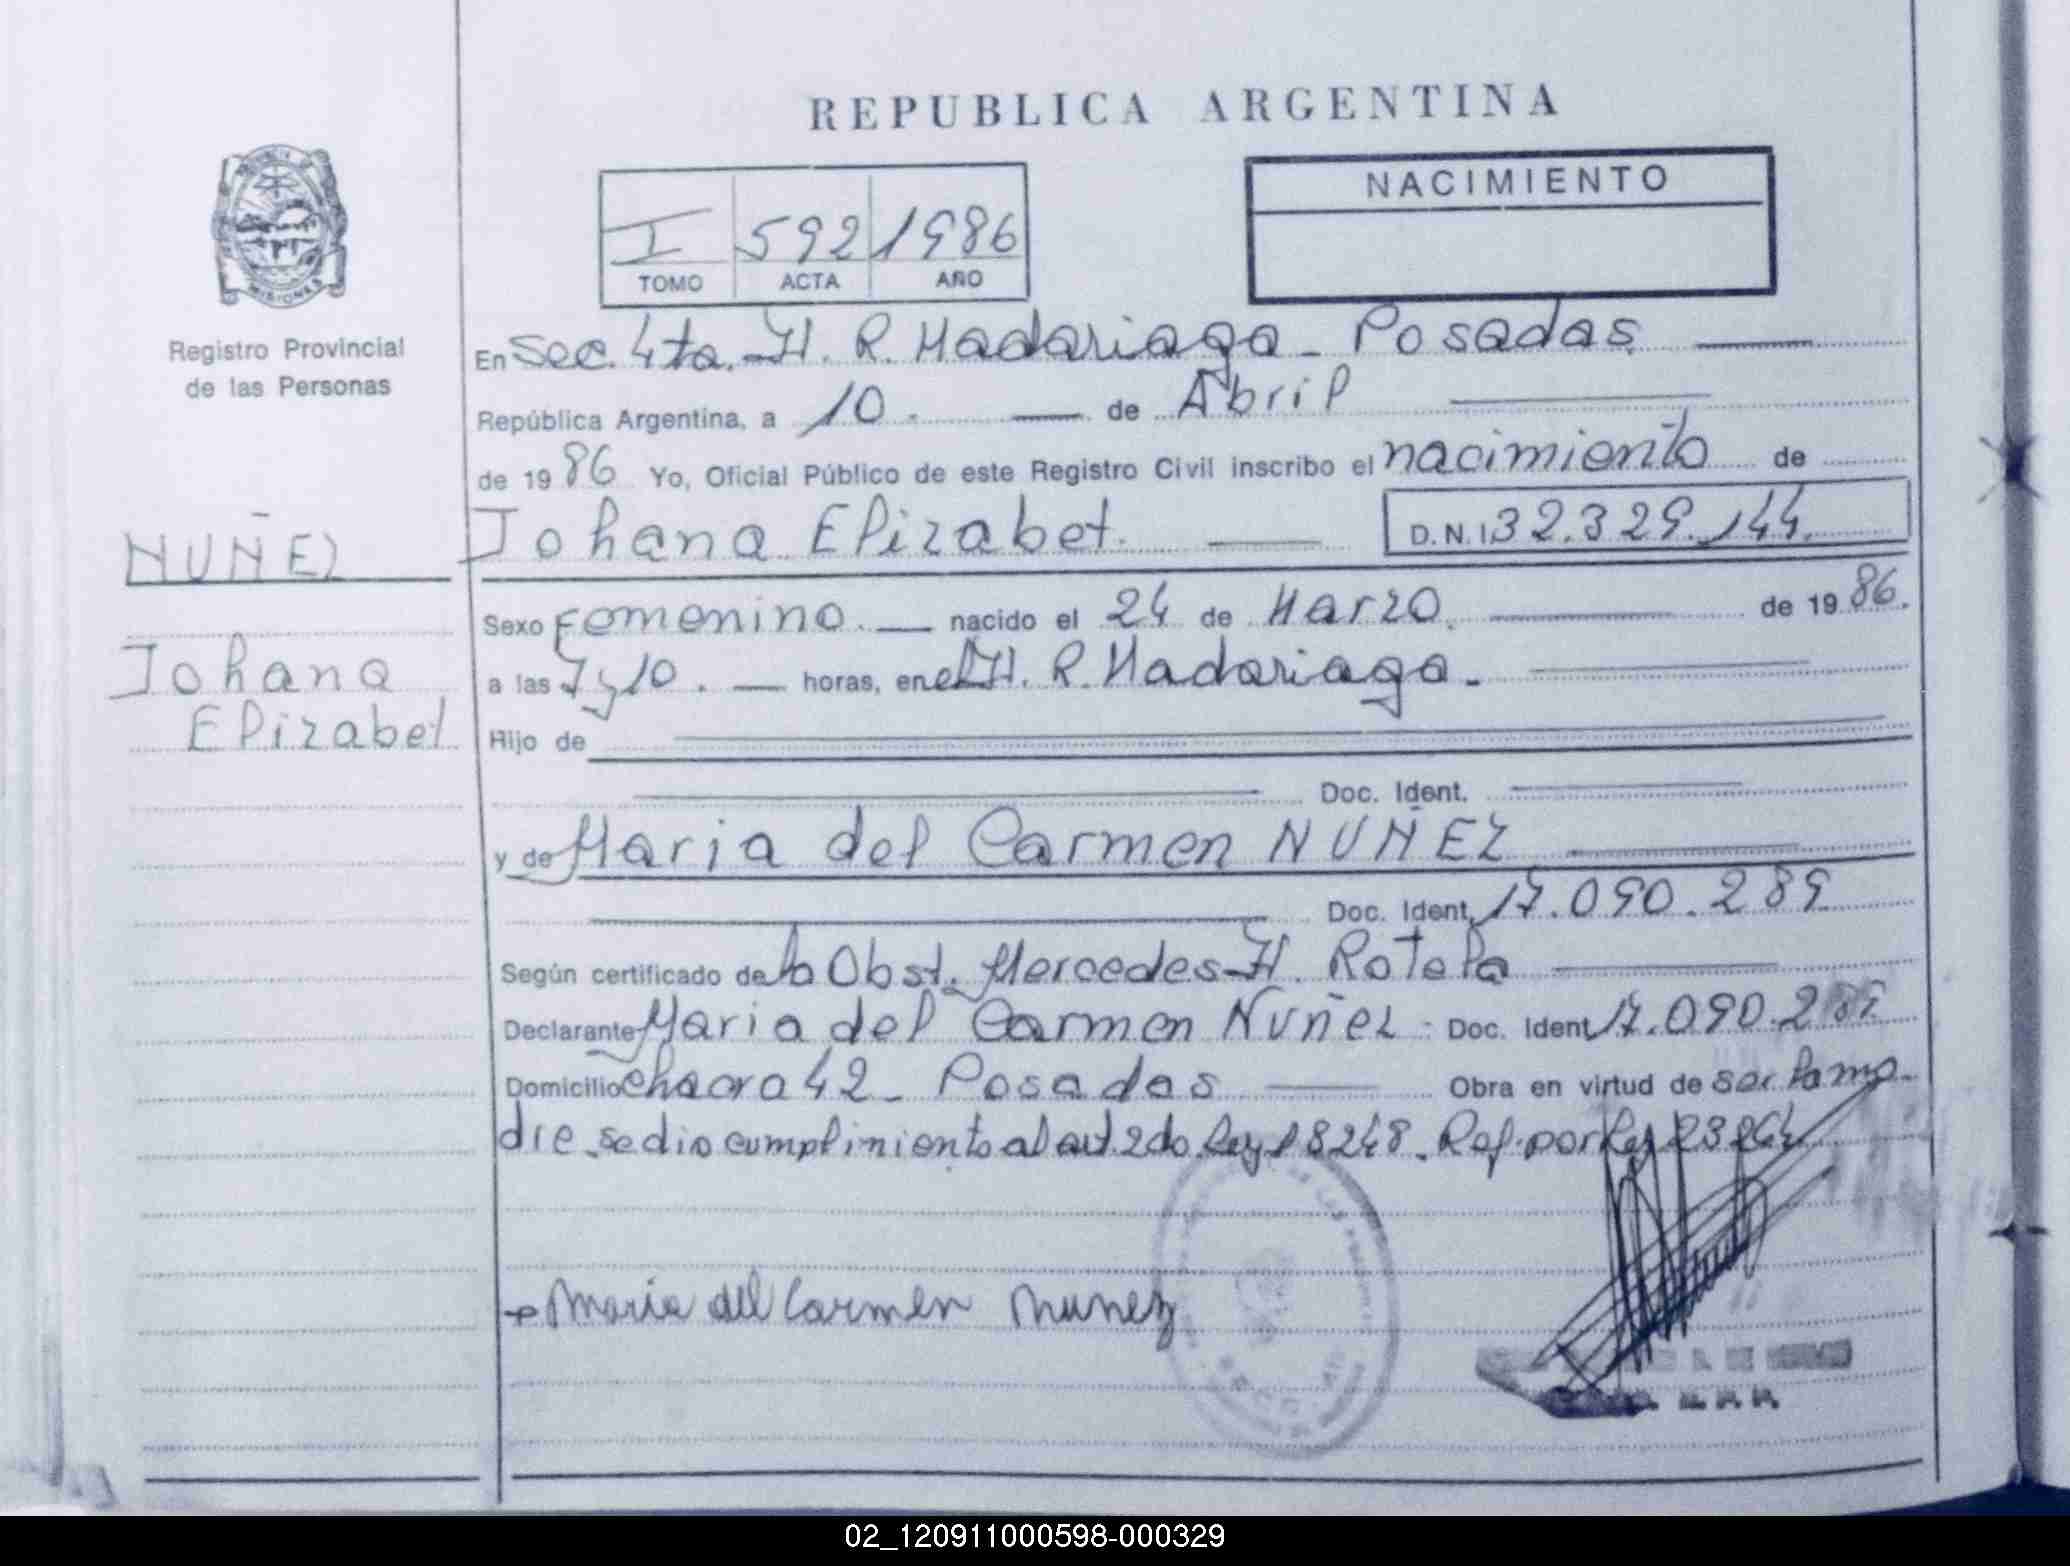 REPUBLICA ARGENTINA
NACIMIENTO
I 592 1986
TOMO ACTA AÑO
MISIONES
Registro Provincial
de las Personas
En Sec. 4ta. H. R. Madariaga - Posadas
República Argentina, a 10. de Abril
de 1986 Yo, Oficial Público de este Registro Civil inscribo el nacimiento de
Johana Elizabet. D.N.I 32.329.144.
NUÑEZ
Johana
Elizabet
Sexo Femenino. nacido el 24 de Marzo. de 1986.
a las 7 y 10. horas, en el H. R. Madariaga.
Hijo de
Doc. Ident.
y de Maria del Carmen NUÑEZ
Doc. Ident. 17.090.289
Según certificado de la Obst. Mercedes H. Rotela
Declarante Maria del Carmen Nuñez. Doc. Ident 17.090.289
Domicilio chacra 42 - Posadas Obra en virtud de ser la ma-
dre. se dio cumplimiento al art. 2do. Ley 18248. Ref. por Ley 23264
Maria del Carmen Nunez
02_120911000598-000329